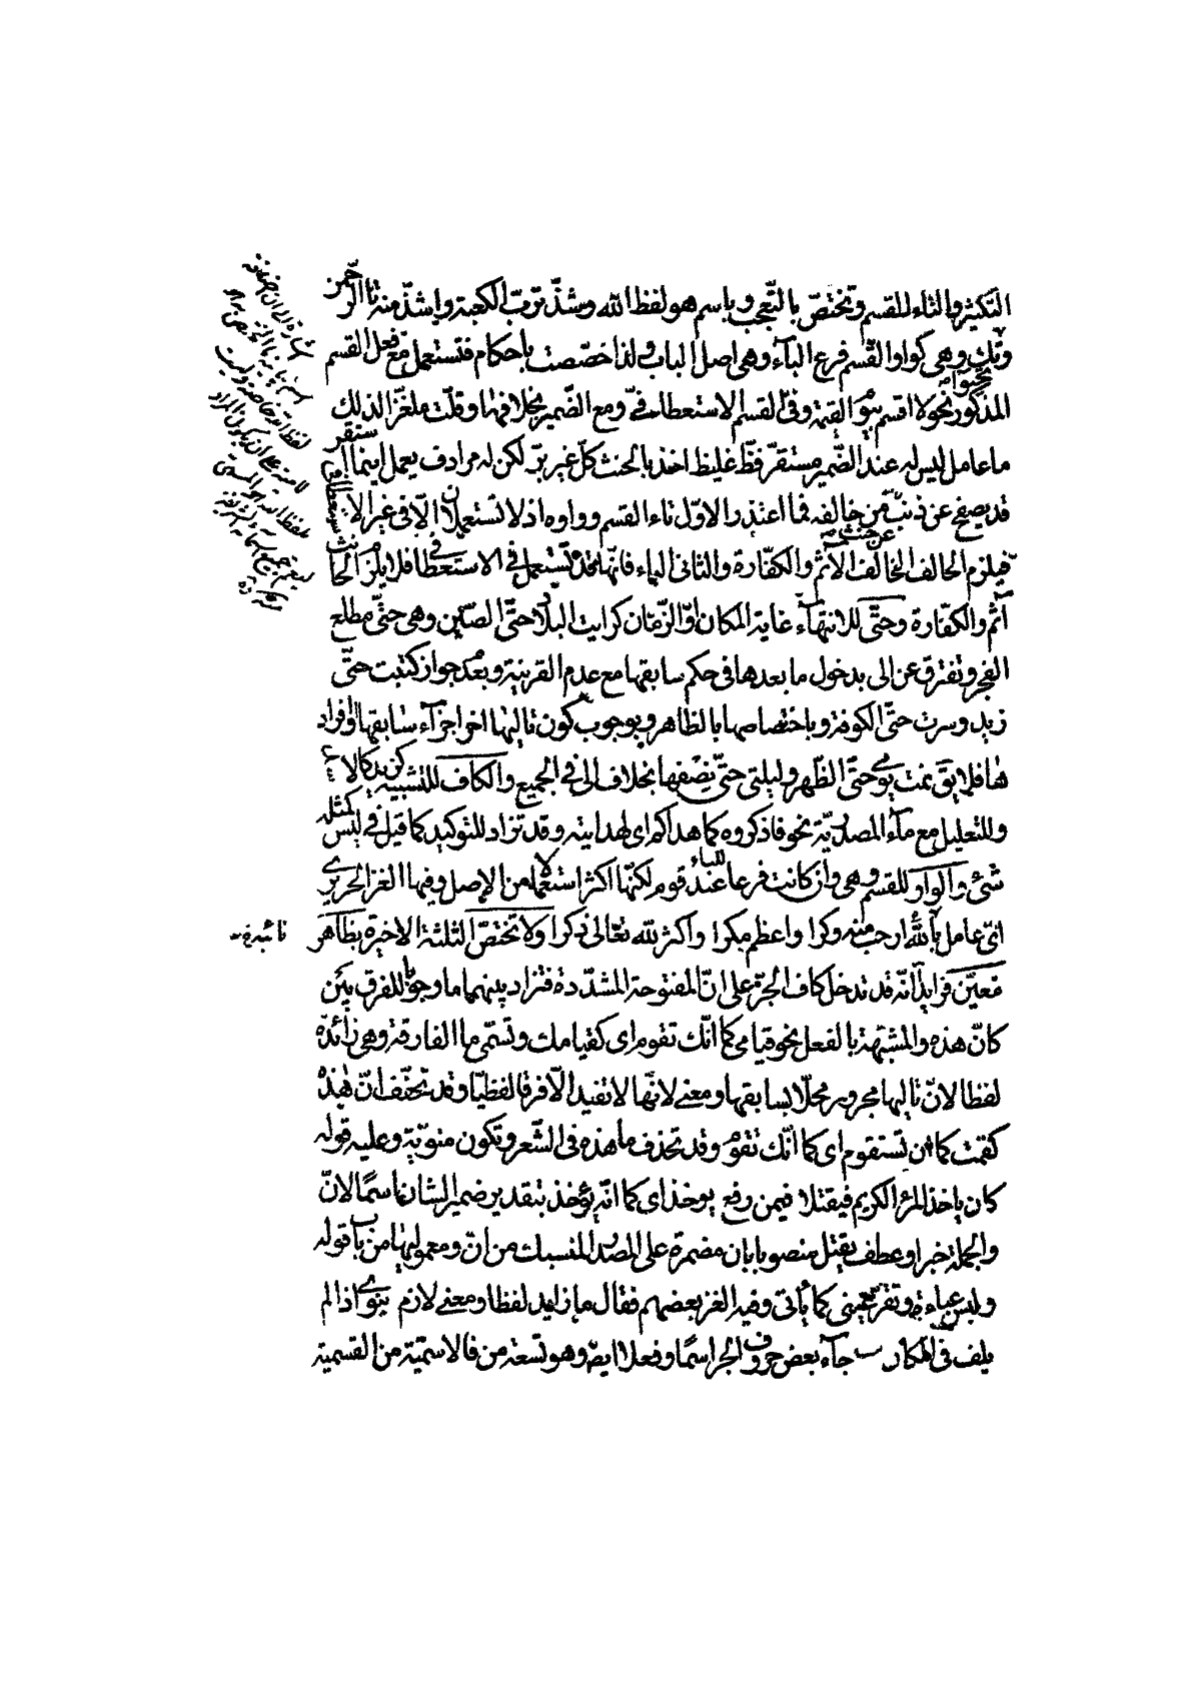 التكثير والتاء للقسم وتختص بالتعجب وباسم هو لفظ الله وشذ تربّ الكعبة واشذ منه تا الرحمن
وتك وهى كواو القسم فرع الباء وهى اصل الباب ولذا خصّصت باحكام فتستعمل مع فعل القسم
المذكور نحو لا اقسم بيوم القيمة وفى القسم الاستعطافى ومع الضمير بخلافهما وقلت ملغزا لذلك
ما عامل ليس له عند الضمير مستقر فظّ غليظ اخذ بالحنث كلّ غير برّ لكن له مرادف يعمل اينما استقر
قد يصفح عن ذنب من خالفه فما اعتذر الاول تاء القسم وواوه اذ لا تستعملان الا فى غير الاستعطافى
فيلزم الحالف المخالف الاثم والكفّارة والثانى الباء فانها قد تستعمل فى الاستعطافى فلا يلزم الحانث
اثم والكفارة وحتّى للانتهاء غاية المكان او الزمان كرايت البلاد حتّى الصين وهى حتّى مطلع
الفجر وتفترق عن الى بدخول ما بعدها فى حكم سابقها مع عدم القرينة وبعدم جواز كتبت حتّى
زيد وسرت حتّى الكوفة وباختصاصها بالظاهر وبوجوب كون تاليها اخر اجزاء سابقها او افراد
ها فلا يق نمت يومى حتّى الظهر وليلتى حتّى نصفها بخلاف الى فى الجميع والكاف للتشبيه كزيد كالاسد
وللتعليل مع ماء المصدريّة نحو فاذكروه كما هداكم اى لهدايته وقد تزاد للتوكيد كما قيل فى ليس كمثله
شئ والواو للقسم وهى وان كانت فرعا للباء عند قوم لكنها اكثر استعمالا من الاصل وفيها الغز الحريرى
اىّ عامل نائبه ارحب منه وكرا واعظم مكرا واكثر لله تعالى ذكرا ولا تختص الثلثة الاخيرة بظاهر
معيّن فرايد انّه قد تدخل كاف الجرّ على انّ المفتوحة المشدّدة فتزاد بينهما ما وجوبا للفرق بين
كانّ هذه والمشبّهة بالفعل نحو قيامى كما انّك تقوم اى كقيامك وتسمّى ما الفارقة وهى زائدة
لفظا لانّ تاليها مجرور محلّا بسابقها ومعنى لانّها لا تفيد الّا فرقا لفظيّا وقد تخفّف انّ هذه
كقمت كما ان ستقوم اى كما انّك تقوم وقد تحذف ما هذه فى الشّعر وتكون منويّة وعليه قوله
كان ياخذ المرء الكريم فيقتلا فيمن رفع يوخذ اى كما انّه يؤخذ بتقدير ضمير الشان اسمًا لانّ
والجملة خبرا وعطف يقتل منصوبا بان مضمرة على المصدر المنسبك من انّ ومعموليها من باب قوله
ولبس عباءة وتقر عينى كما يأتى وفيه الغز بعضهم فقال ما زايد لفظا ومعنى لازم ينوى اذا لم
يلف فى المكان جاء بعض حروف الجر اسمًا وفعلا ايضا وهو تسعة من فالاسميّة من القسميّة